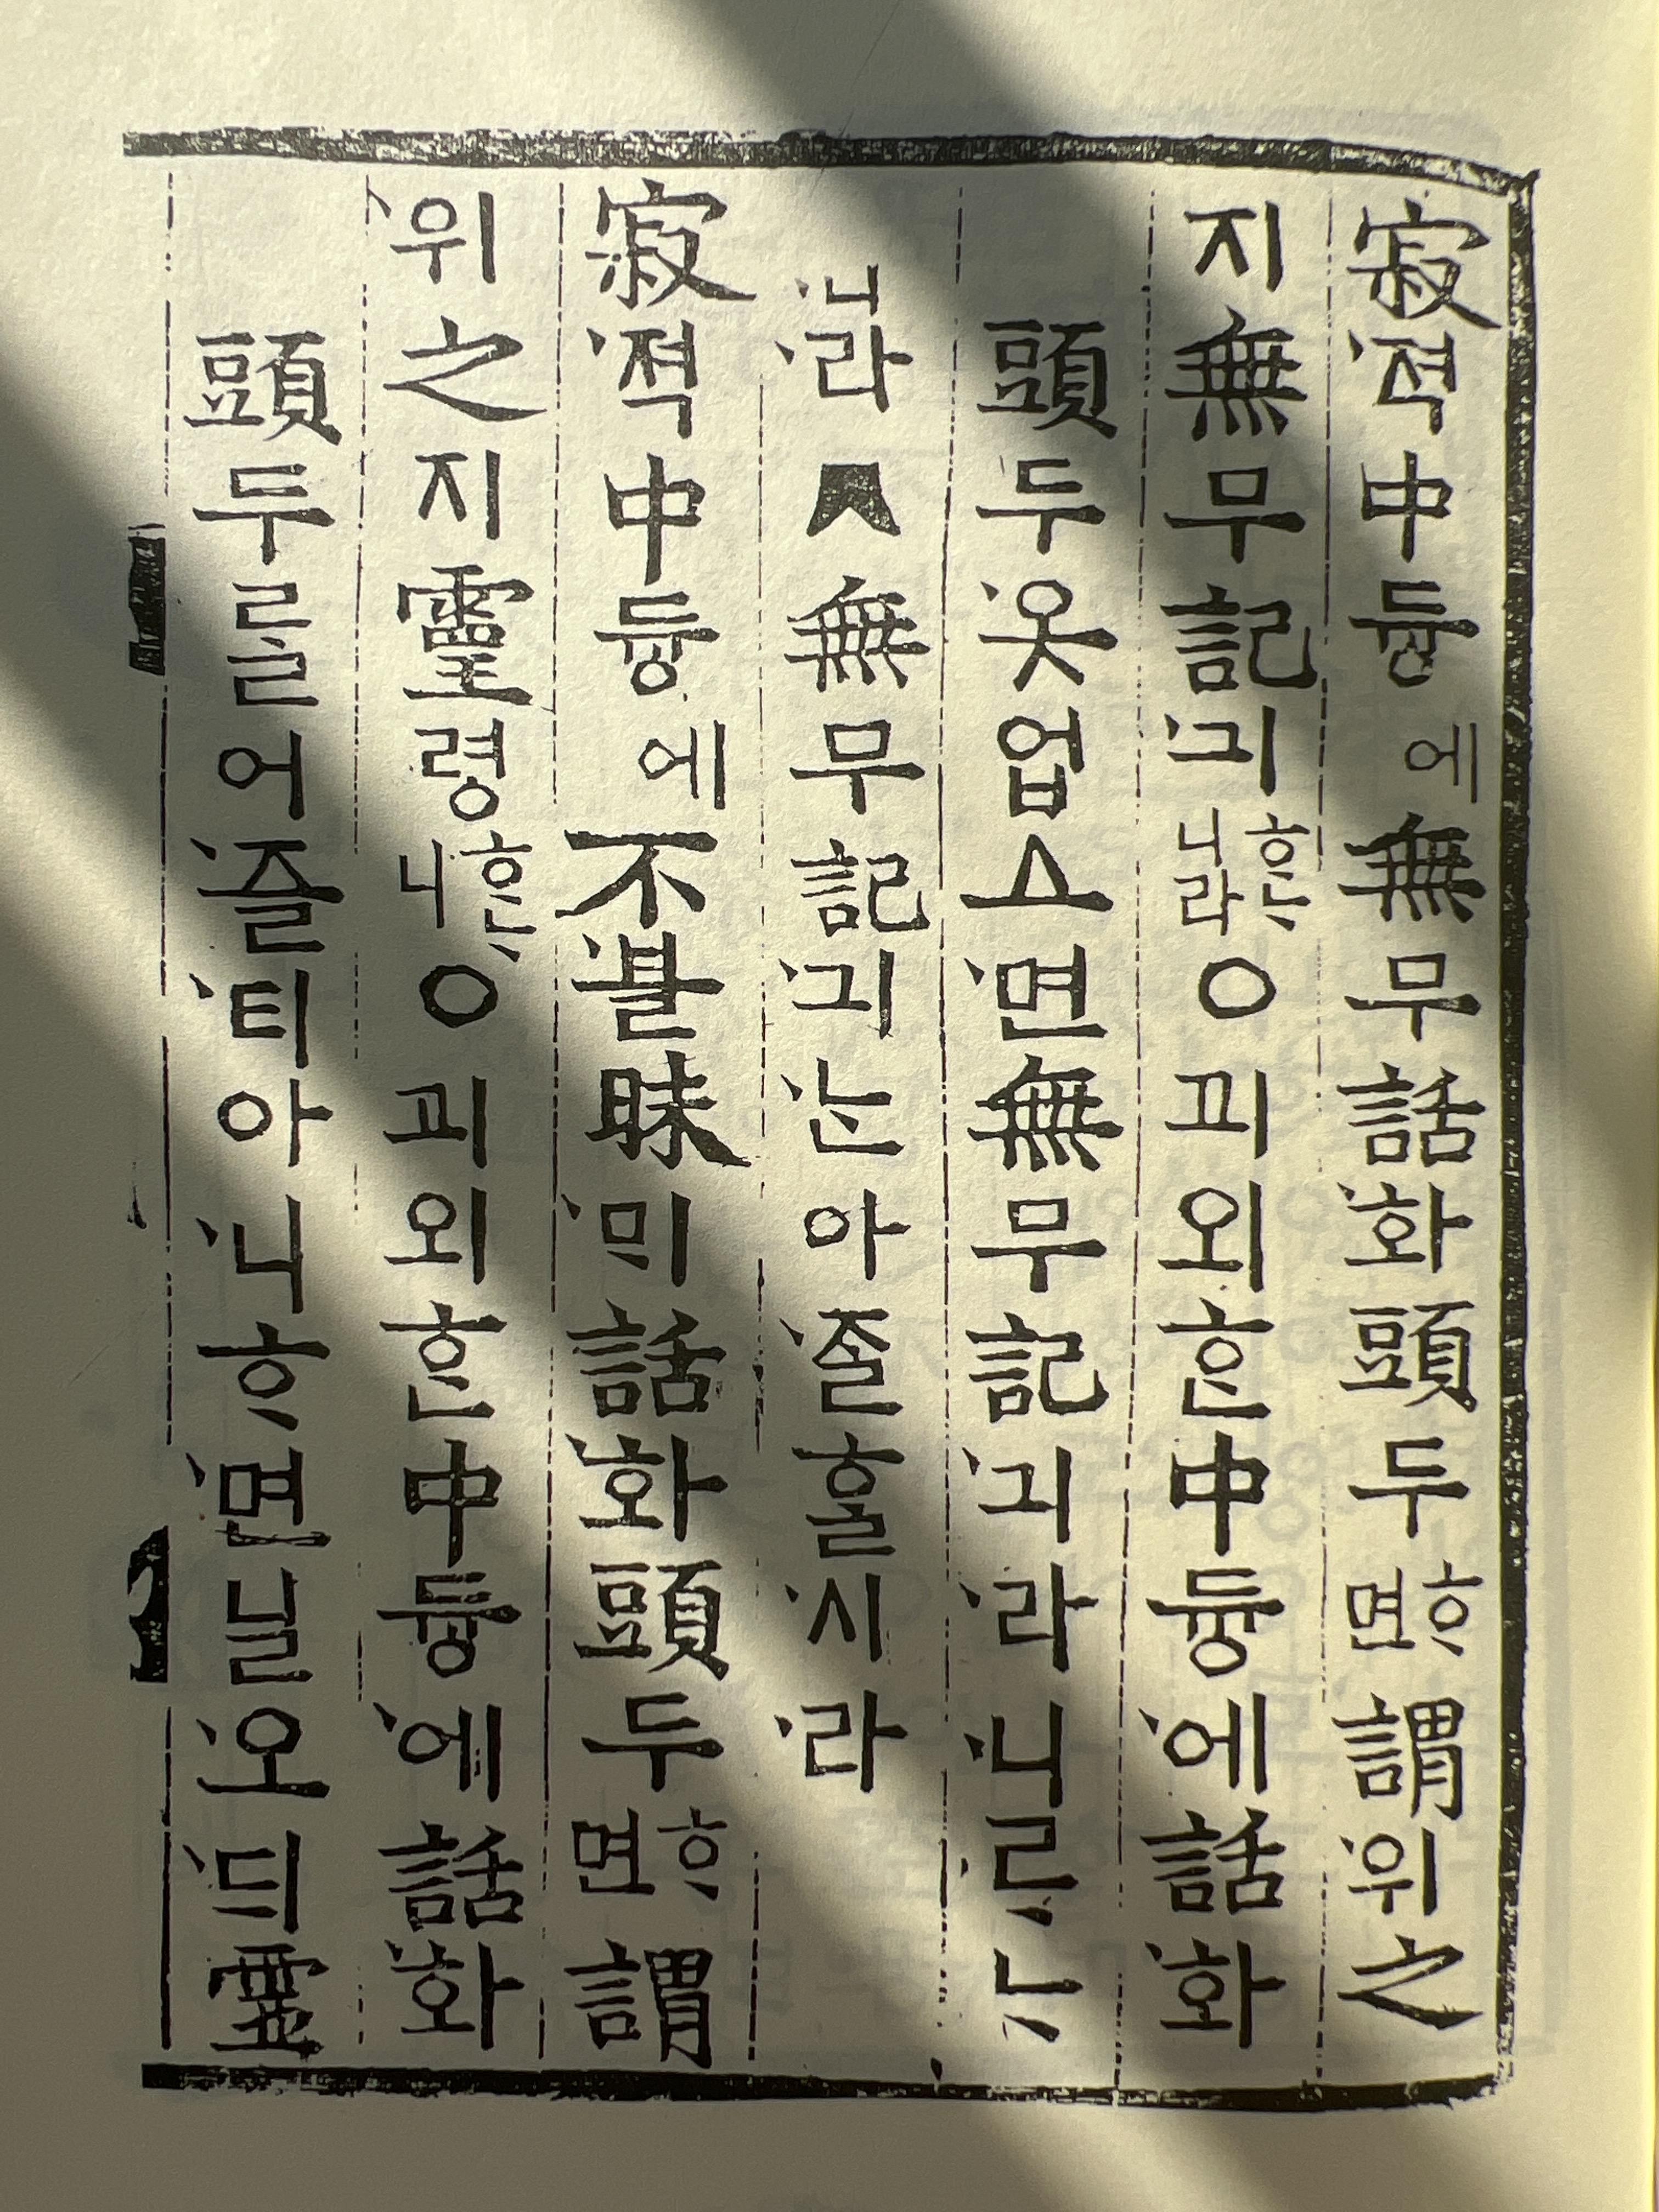 寂·젹中듕에無무話·화頭두ᄒᆞ면謂·위之
지無무記·긔ᄒᆞᄂᆞ니라○괴외ᄒᆞᆫ中듕·에話·화
頭두·옷업ᅀᅳ·면無무記·긔·라·니·ᄅᆞᄂᆞ
·니·라無무記·긔·ᄂᆞᆫ아·ᄌᆞᆯᄒᆞᆯ·시·라
寂·젹中듕에不·블昧·ᄆᆡ話·화頭두ᄒᆞ면謂
·위之지靈령ᄒᆞᄂᆞ니○괴외ᄒᆞᆫ中듕·에話·화
頭두를어·즐·티아·니ᄒᆞ·면닐·오·ᄃᆡ靈